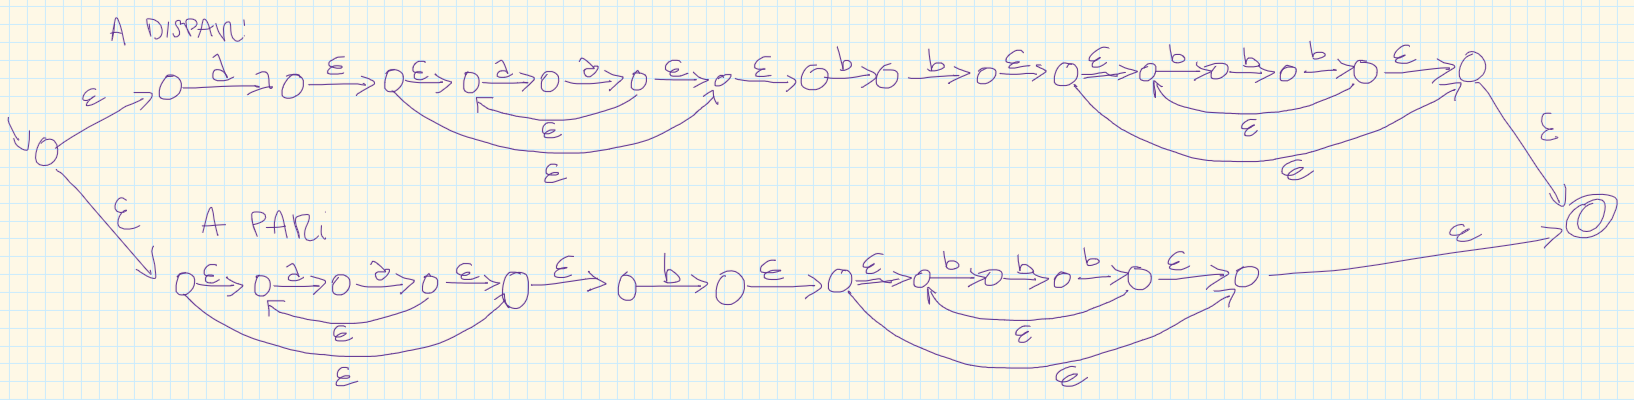 A DISPARI
ε a ε ε a a ε ε b b ε ε b b b ε
ε ε
ε ε
ε
ε
A PARI
ε a a ε ε b ε ε b b b ε ε
ε ε
ε ε